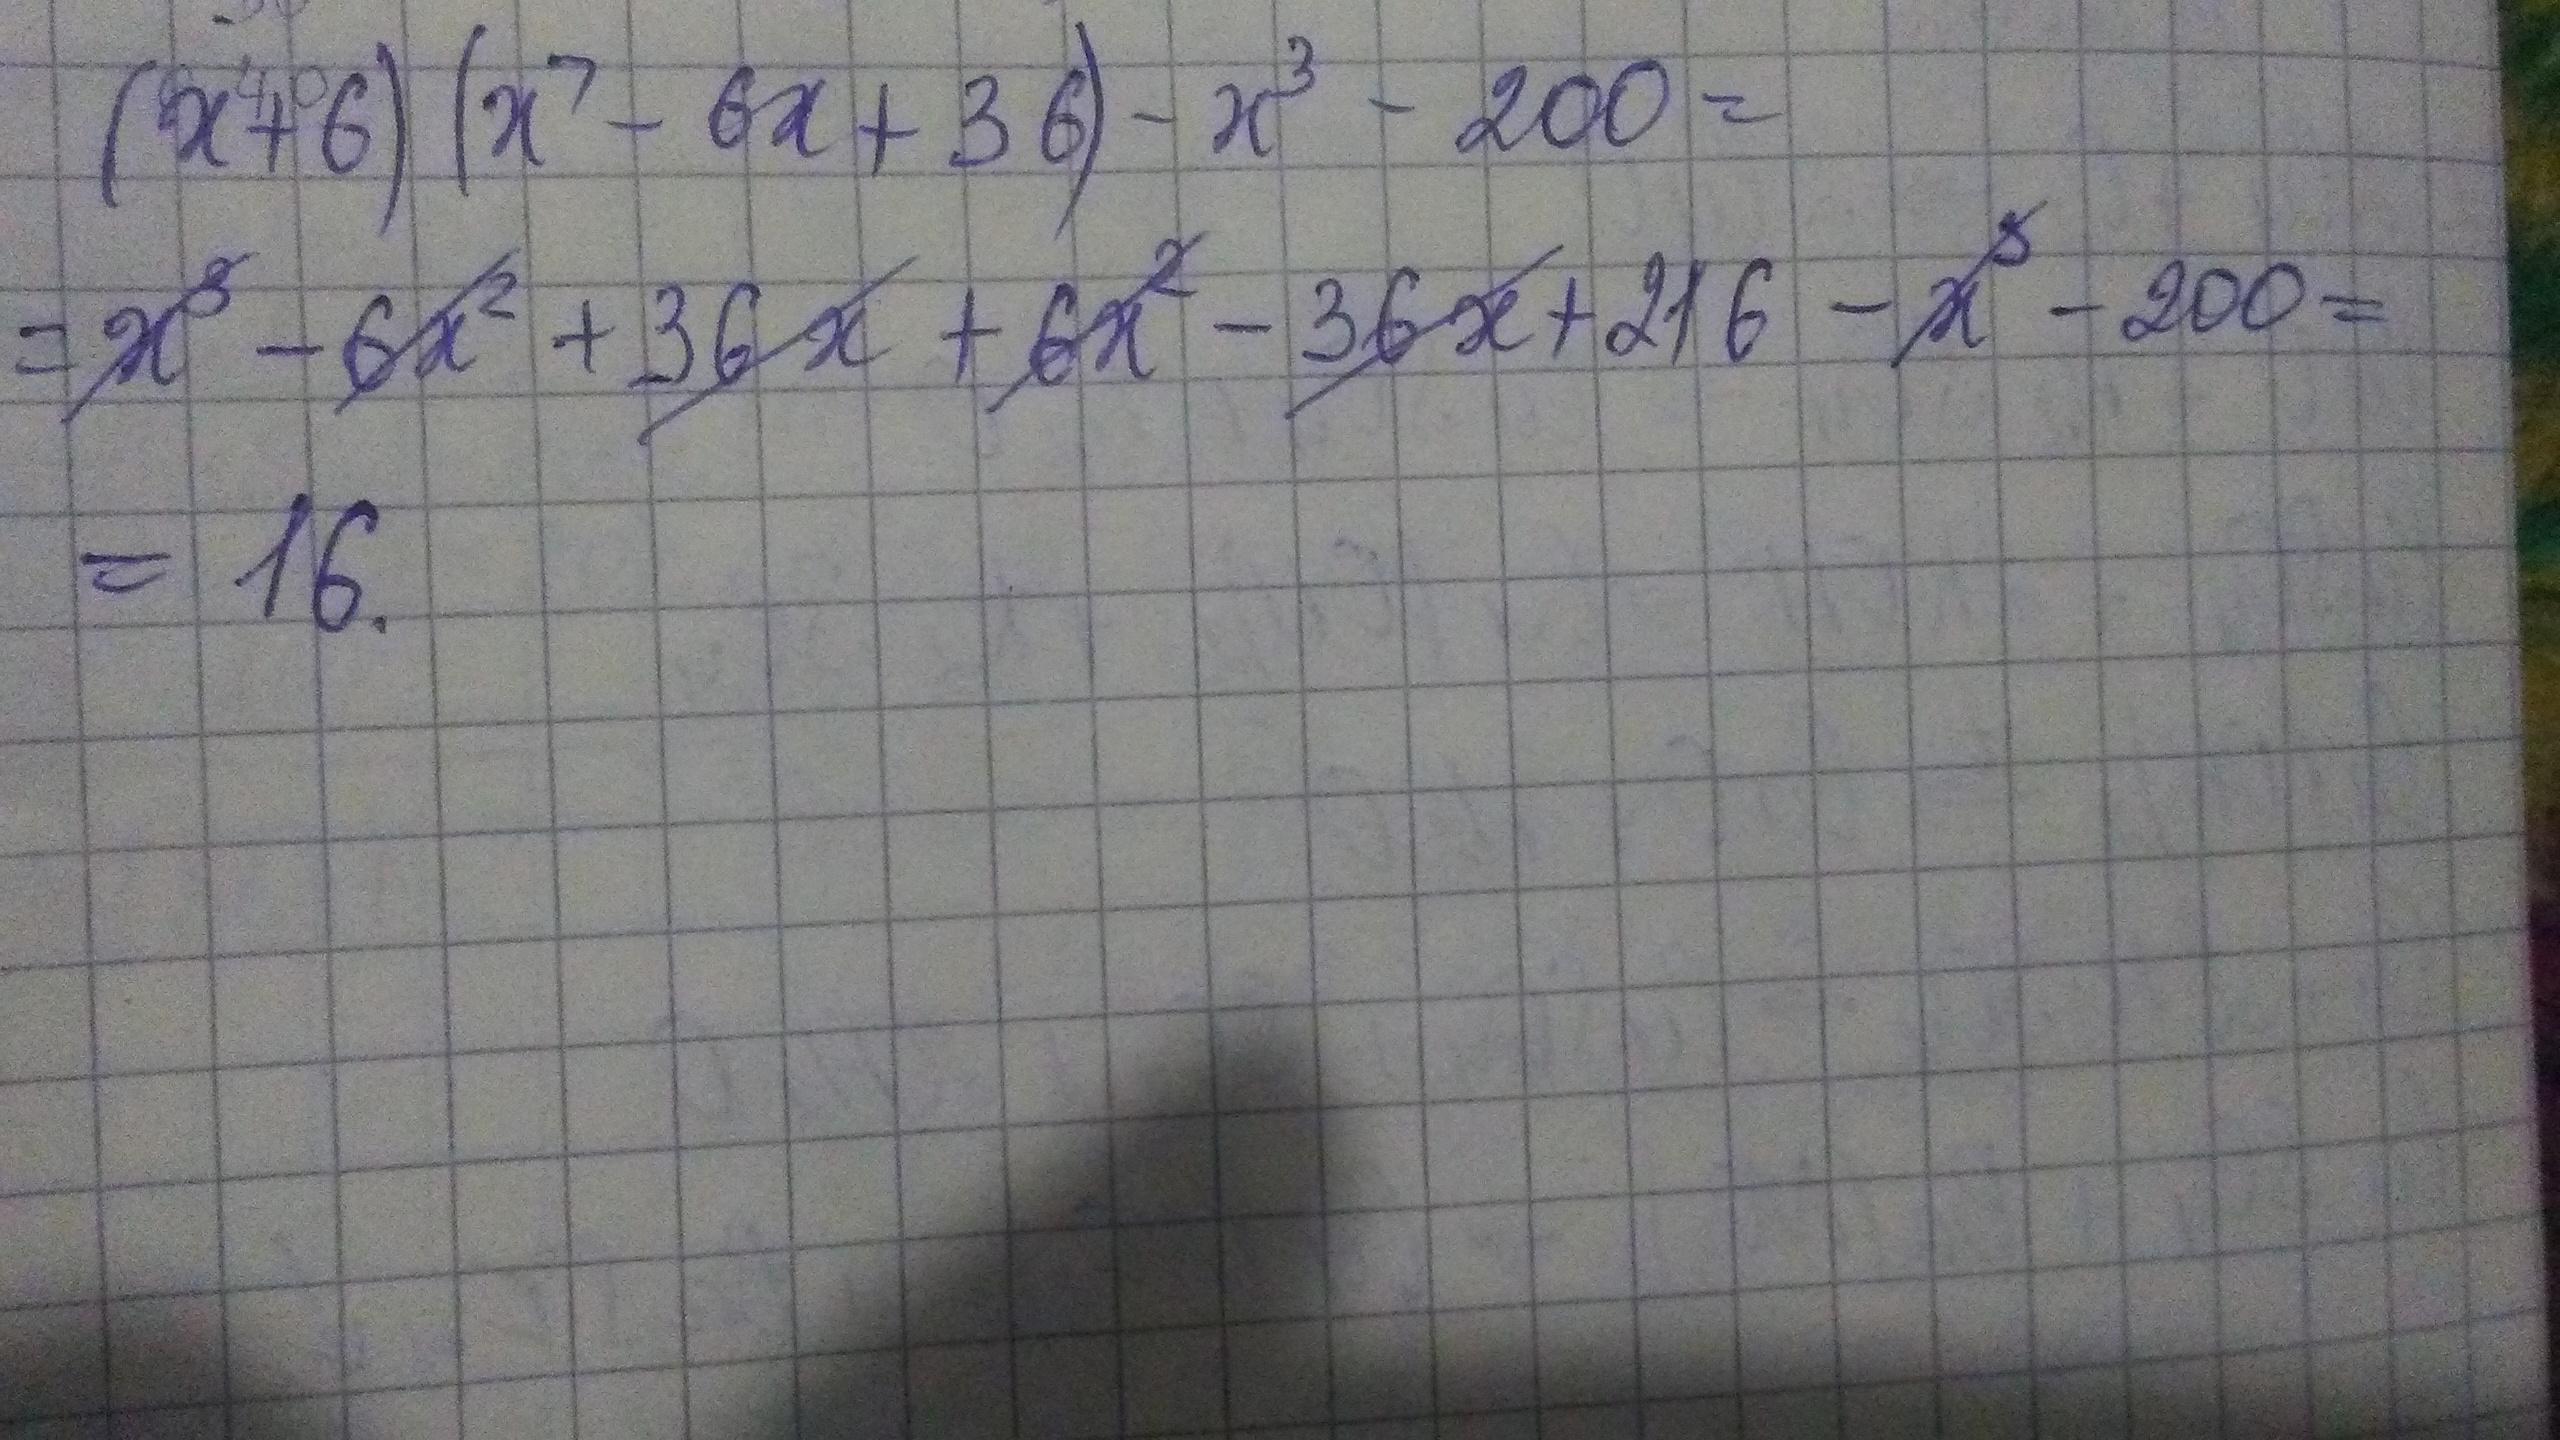 (x+6)(x⁷ - 6x + 36) - x³ - 200 =
= x³ - 6x² + 36x + 6x² - 36x + 216 - x³ - 200 =
= 16.